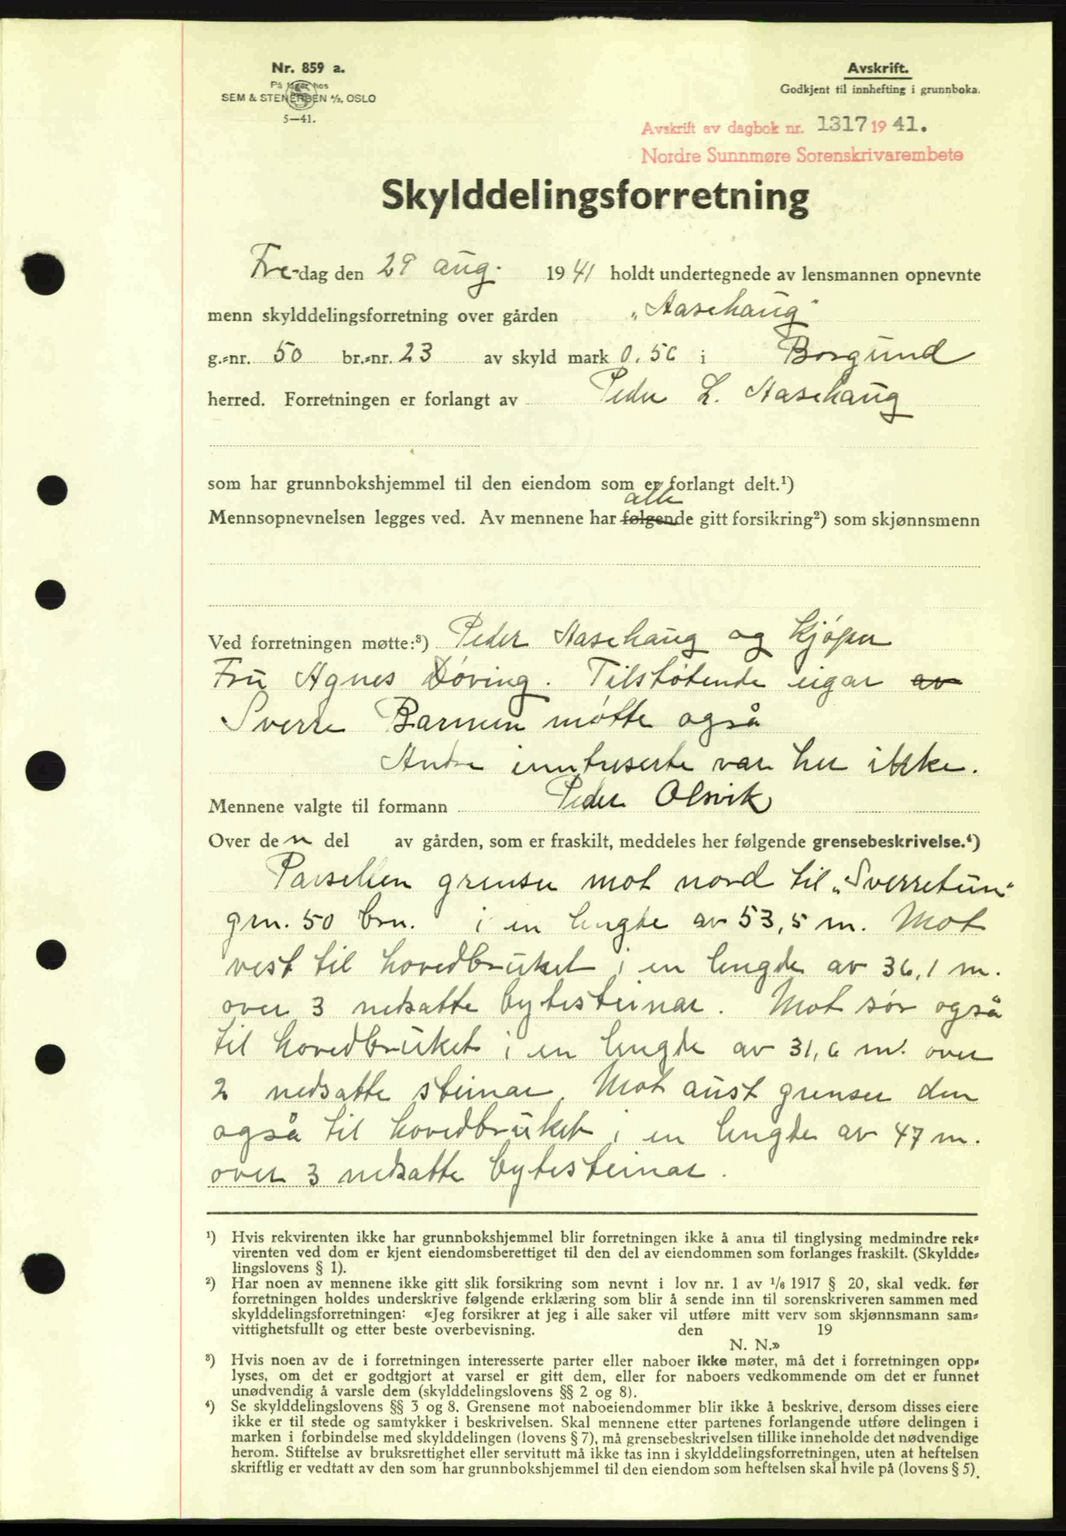 Nr. 859 a.
På lager hos
SEM & STENERSEN A/S, OSLO
5—41.
Avskrift.
Godkjent til innhefting i grunnboka.
Avskrift av dagbok nr. 1317 1941.
Nordre Sunnmøre Sorenskrivarembete
Skylddelingsforretning
Fre-dag den 29 aug. 1941 holdt undertegnede av lensmannen opnevnte
menn skylddelingsforretning over gården „Aasehaug"
g.-nr. 50 br.-nr. 23 av skyld mark 0.56 i Borgund
herred. Forretningen er forlangt av Peder L. Aasehaug
som har grunnbokshjemmel til den eiendom som er forlangt delt.¹)
alle
Mennsopnevnelsen legges ved. Av mennene har følgende gitt forsikring²) som skjønnsmenn
Ved forretningen møtte:³) Peder Aasehaug og kjøper
Fru Agnes Døving. Tilstøtende eigar av
Sverre Barmen møtte også
Andre inntreserte var her ikke.
Mennene valgte til formann Peder Olsvik
Over den del av gården, som er fraskilt, meddeles her følgende grensebeskrivelse.⁴)
Parsellen grenser mot nord til „Sverretun"
grn. 50 brn. i en lengde av 53,5 m. Mot
vest til hovedbruket i en lengde av 36,1 m.
over 3 nedsatte bytesteinar. Mot sør også
til hovedbruket i en lengde av 31,6 m. over
2 nedsatte steinar. Mot aust grenser den
også til hovedbruket i en lengde av 47 m.
over 3 nedsatte bytesteinar.
¹) Hvis rekvirenten ikke har grunnbokshjemmel blir forretningen ikke å anta til tinglysing medmindre rek-
virenten ved dom er kjent eiendomsberettiget til den del av eiendommen som forlanges fraskilt. (Skyldde-
lingslovens § 1).
²) Har noen av mennene ikke gitt slik forsikring som nevnt i lov nr. 1 av 1/6 1917 § 20, skal vedk. før
forretningen holdes underskrive følgende erklæring som blir å sende inn til sorenskriveren sammen med
skylddelingsforretningen: «Jeg forsikrer at jeg i alle saker vil utføre mitt verv som skjønnsmann sam-
vittighetsfullt og etter beste overbevisning. den 19
N. N.»
³) Hvis noen av de i forretningen interesserte parter eller naboer ikke møter, må det i forretningen opp-
lyses, om det er godtgjort at varsel er gitt dem, eller for naboers vedkommende om det er funnet
unødvendig å varsle dem (skylddelingslovens §§ 2 og 8).
⁴) Se skylddelingslovens §§ 3 og 8. Grensene mot naboeiendommer blir ikke å beskrive, dersom disses eiere
ikke er til stede og samtykker i beskrivelsen. Skal mennene etter partenes forlangende utføre delingen i
marken i forbindelse med skylddelingen (lovens § 7), må grensebeskrivelsen tillike inneholde det nødvendige
herom. Stiftelse av bruksrettighet eller servitutt må ikke tas inn i skylddelingsforretningen, uten at heftelsen
skriftlig er vedtatt av den som har grunnbokshjemmel til den eiendom som heftelsen skal hvile på (lovens § 5).